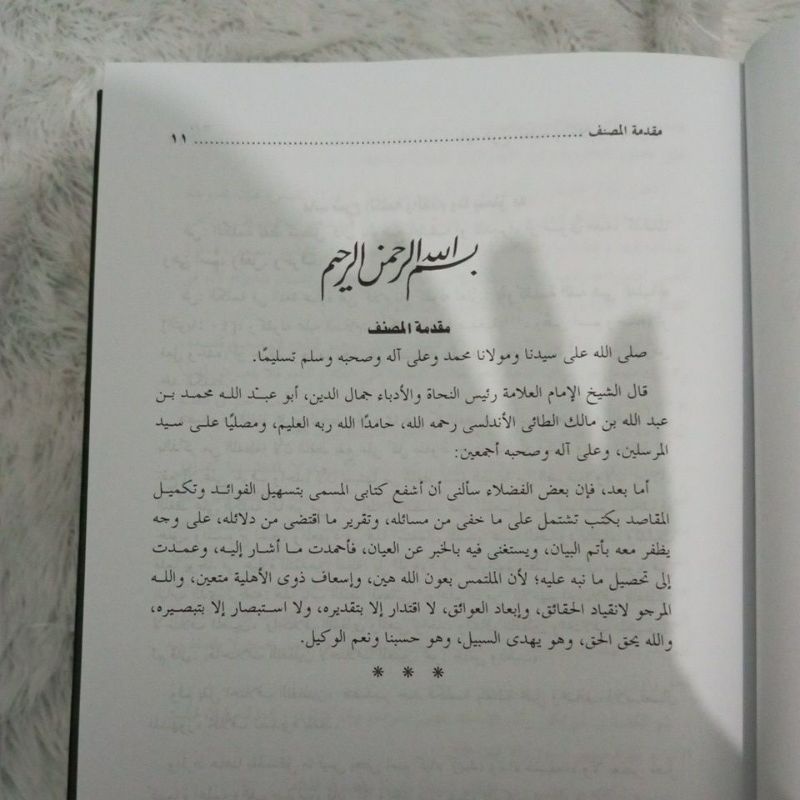 مقدمة المصنف ........................................................ ١١
بسم الله الرحمن الرحيم
مقدمة المصنف
صلى الله على سيدنا ومولانا محمد وعلى آله وصحبه وسلم تسليمًا.
قال الشيخ الإمام العلامة رئيس النحاة والأدباء جمال الدين، أبو عبد الله محمد بن
عبد الله بن مالك الطائى الأندلسى رحمه الله، حامدًا الله ربه العليم، ومصليًا على سيد
المرسلين، وعلى آله وصحبه أجمعين:
أما بعد، فإن بعض الفضلاء سألنى أن أشفع كتابى المسمى بتسهيل الفوائد وتكميل
المقاصد بكتب تشتمل على ما خفى من مسائله، وتقرير ما اقتضى من دلائله، على وجه
يظفر معه بأتم البيان، ويستغنى فيه بالخبر عن العيان، فأحمدت ما أشار إليه، وعمدت
إلى تحصيل ما نبه عليه؛ لأن الملتمس بعون الله هين، وإسعاف ذوى الأهلية متعين، والله
المرجو لانقياد الحقائق، وإبعاد العوائق، لا اقتدار إلا بتقديره، ولا استبصار إلا بتبصيره،
والله يحق الحق، وهو يهدى السبيل، وهو حسبنا ونعم الوكيل.
* * *